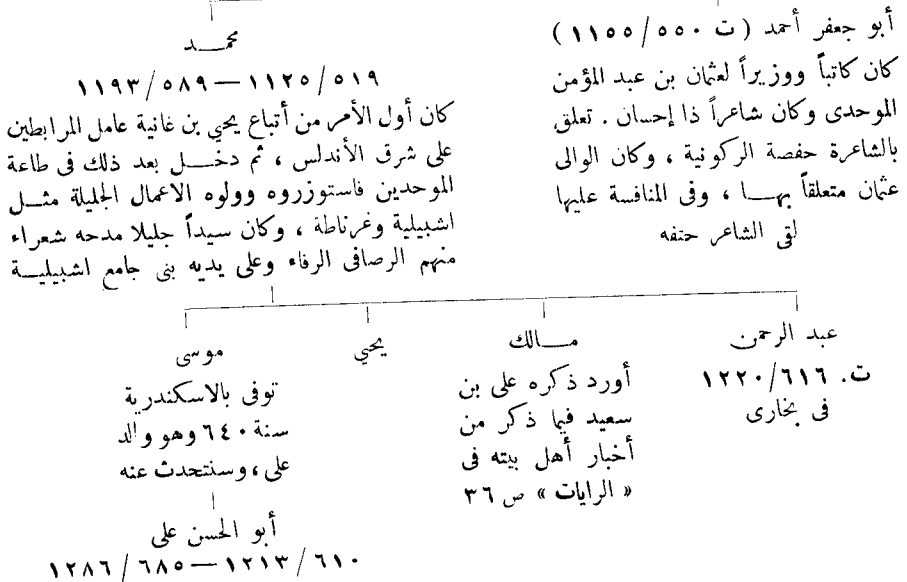 أبو جعفر أحمد ( ت ٥٥٠ / ١١٥٥ )
كان كاتباً ووزيراً لعثمان بن عبد المؤمن
الموحدى وكان شاعراً ذا إحسان . تعلق
بالشاعرة حفصة الركونية ، وكان الوالى
عثمان متعلقاً بهـا ، وفى المنافسة عليها
لقى الشاعر حتفه
محمـد
٥١٩ / ١١٢٥ — ٥٨٩ / ١١٩٣
كان أول الأمر من أتباع يحيي بن غانية عامل المرابطين
على شرق الأندلس ، ثم دخـل بعد ذلك فى طاعة
الموحدين فاستوزروه وولوه الاعمال الجليلة مثـل
اشبيلية وغرناطة ، وكان سيداً جليلا مدحه شعراء
منهم الرصافى الرفاء وعلى يديه بنى جامع اشبيليـة
عبد الرحمن
ت. ٦١٦ / ١٢٢٠
فى بخارى
مـالك
أورد ذكره على بن
سعيد فيما ذكر من
أخبار أهل بيته فى
« الرايات » ص ٣٦
يحيي
موسى
توفى بالاسكندرية
سنة ٦٤٠ وهو والد
على ، وسنتحدث عنه
أبو الحسن على
٦١٠ / ١٢١٣ — ٦٨٥ / ١٢٨٦